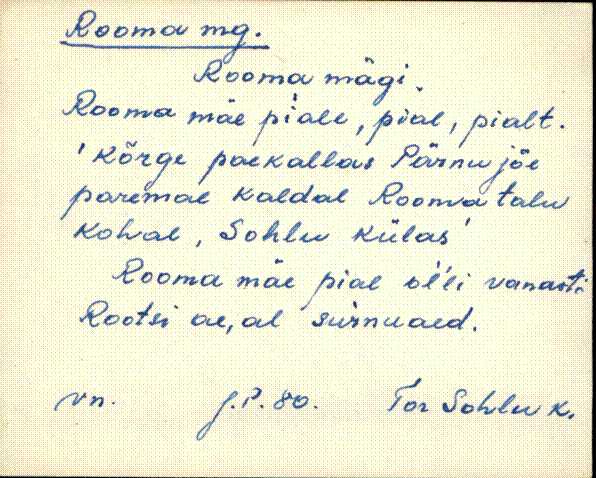 Rooma mg.
Rooma mägi.
Rooma mäe piale, pial, pialt.
'Kõrge paekallas Pärnu jõe
paremal kaldal Rooma talu
kohal, Sohlu külas'
Rooma mäe pial oĺĺi vanasti
Rootsi ae,al surnuaed.
vn. J.P. 80. Tor Sohlu k.